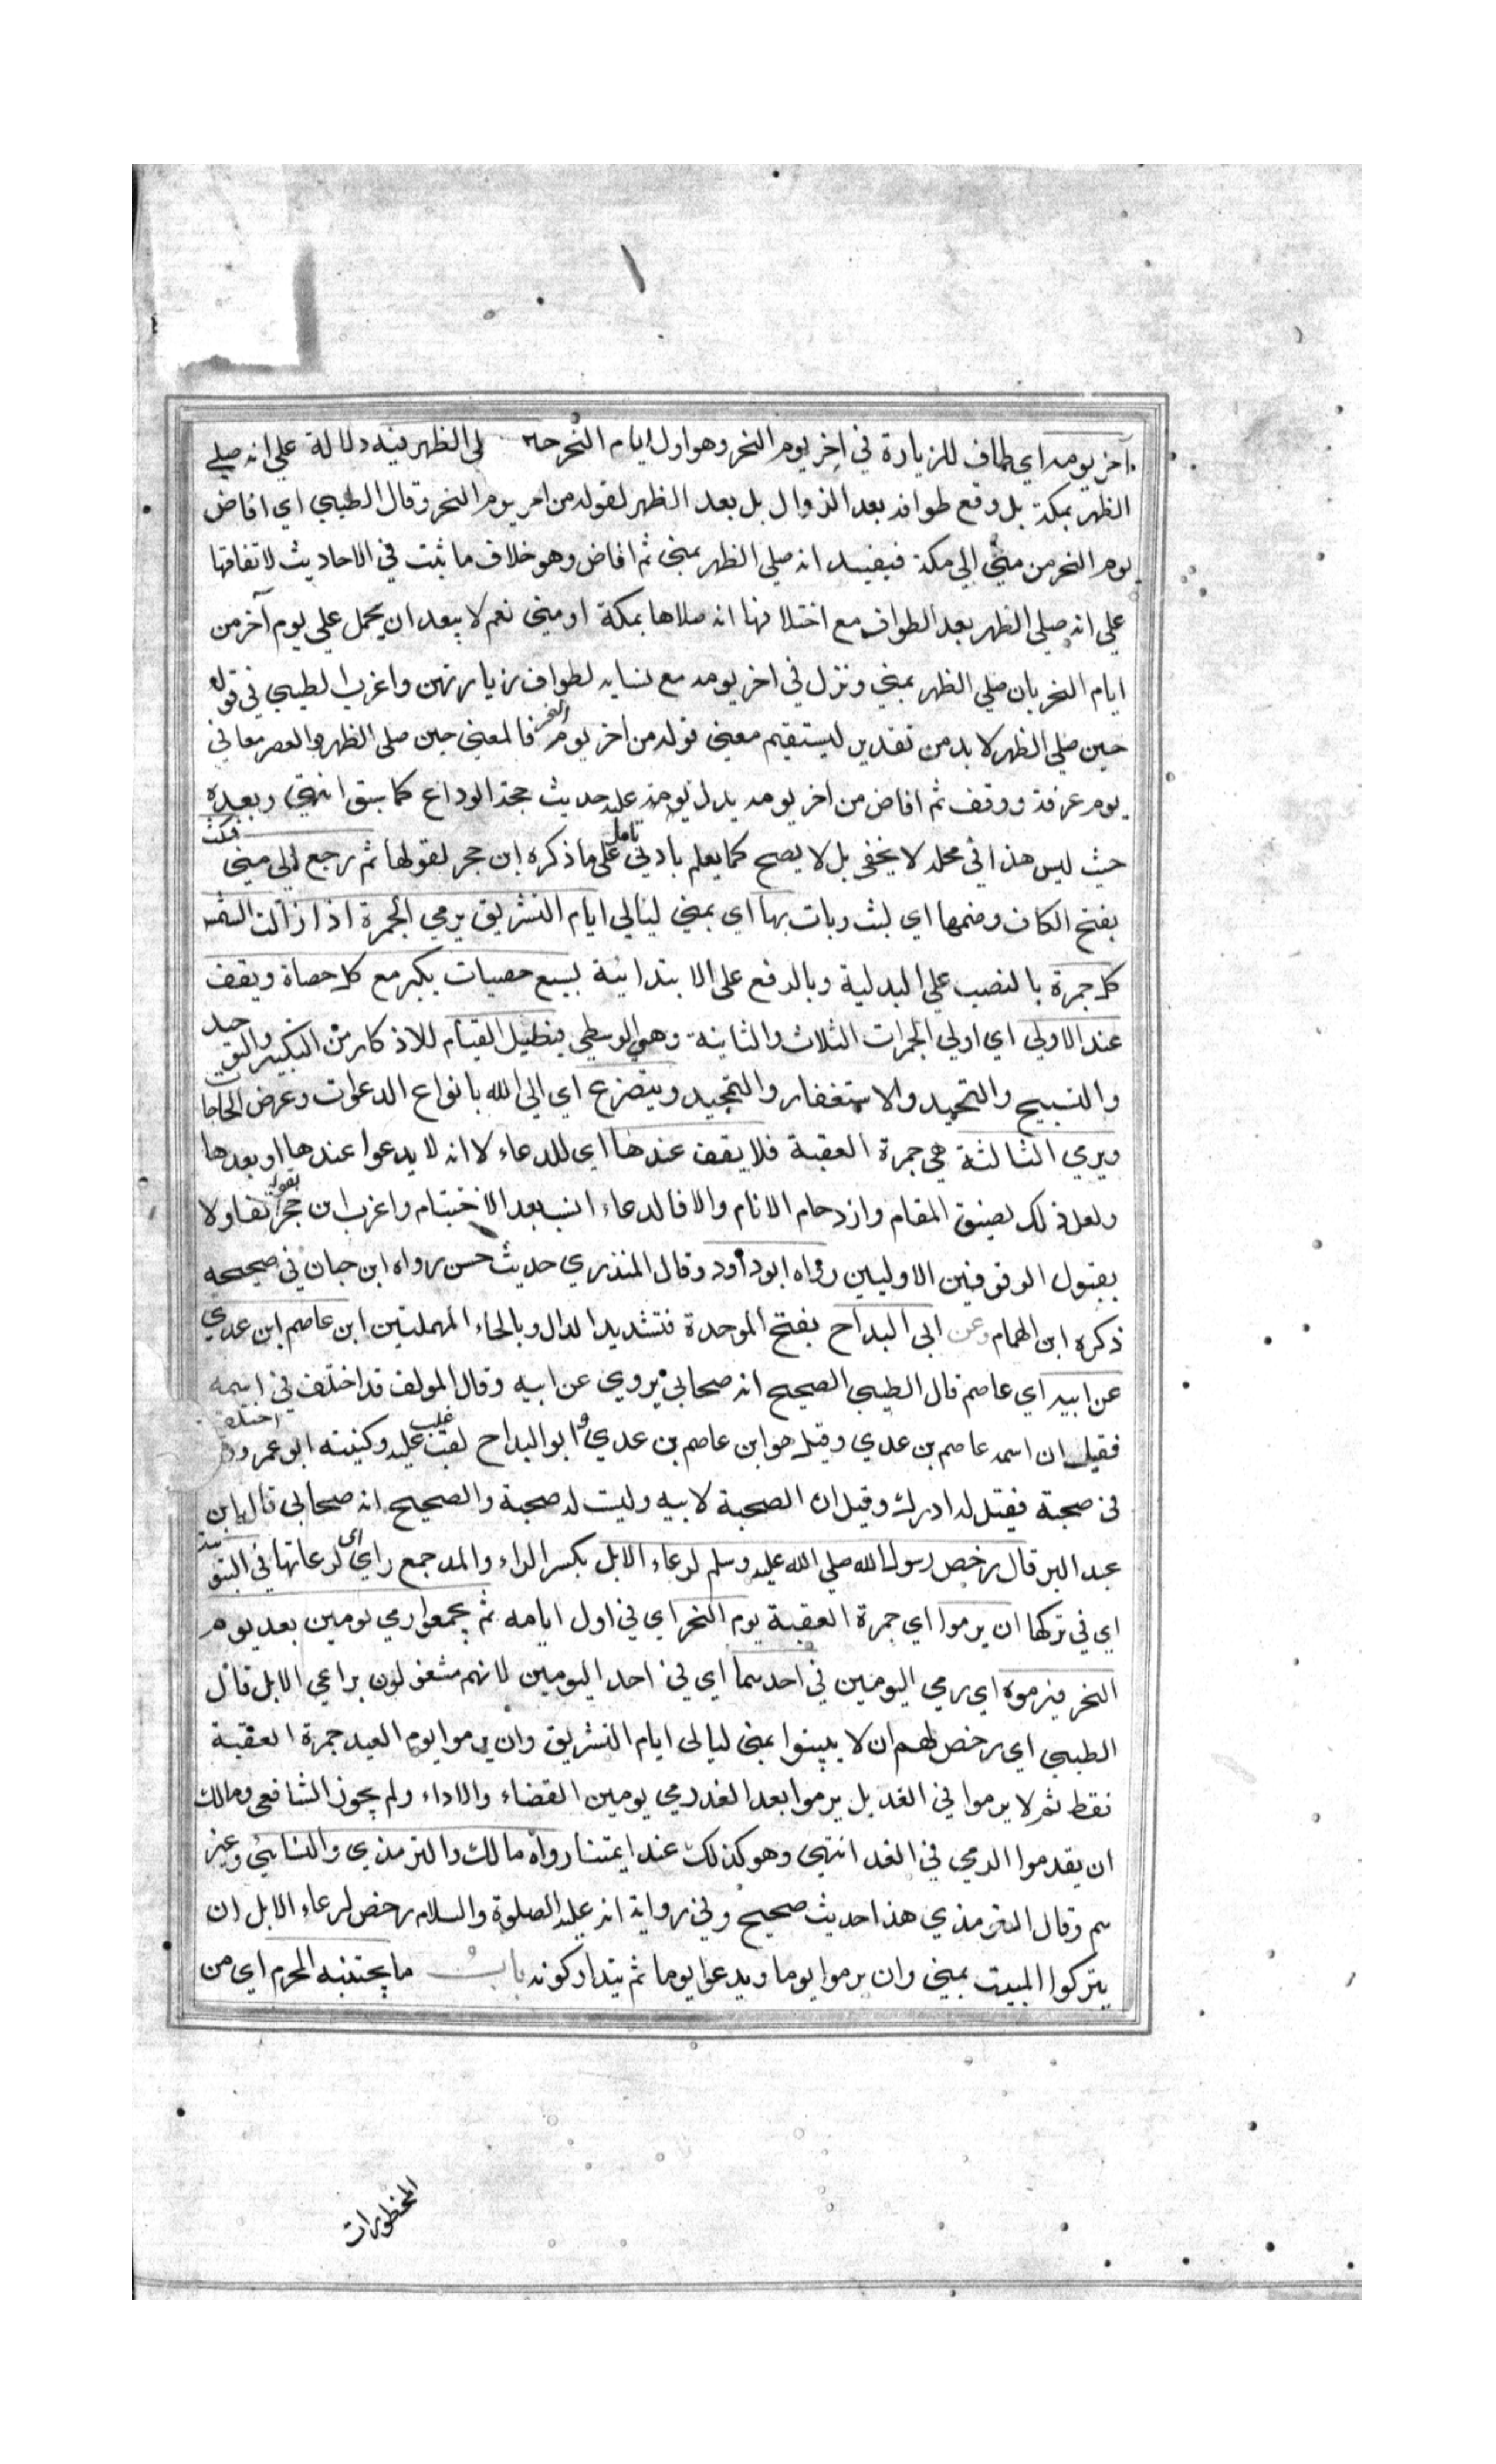 آخر يومه اي طاف للزيارة في آخر يوم النحر وهو اول ايام النحر حين صلى الظهر فيه دلالة علي انه صلي
الظهر بمكة بل وقع طوافه بعد الزوال بل بعد الظهر لقوله من اخر يوم النحر وقال الطيبي اي افاض
يوم النحر من مني الي مكة فيفيد انه صلي الظهر بمني ثم افاض وهو خلاف ما ثبت في الاحاديث لاتفاقها
علي انه صلي الظهر بعد الطواف مع اختلافها انه صلاها بمكة او مني نعم لا يبعد ان يحمل علي يوم آخر من
ايام النحر بان صلي الظهر بمني ونزل في اخر يومه مع نسايه لطواف زيارتهن واغرب الطيبي في قوله
حين صلي الظهر لا بد من تقدير ليستقيم معني قوله من اخر يوم النحر فالمعني حين صلى الظهر والعصر معا في
يوم عرفة ووقف ثم افاض من اخر يومه يدل عليه حديث حجة الوداع كما سبق انتهي وبعده
حيث ليس هذا في محله لا يخفى بل لا يصح كما يعلم بادني تامل علي ما ذكره ابن حجر لقولها ثم رجع الي مني فمكث
بفتح الكاف وضمها اي لبث وبات بها اي بمني ليالي ايام التشريق يرمي الجمرة اذا زالت الشمس
كل جمرة بالنصب علي البدلية وبالرفع على الابتدائية بسبع حصيات يكبر مع كل حصاة ويقف
عند الاولي اي اولي الجمرات الثلاث والثانية وهي الوسطي فيطيل القيام للاذكار من التكبير والتوحيد
والتسبيح والتحميد والاستغفار والتمجيد ويتضرع اي الي الله بانواع الدعوات وعرض الحاجات
ويرمي الثالثة هي جمرة العقبة فلا يقف عندها اي للدعاء لا انه لا يدعوا عندها او بعدها
ولعل ذلك لضيق المقام وازدحام الانام والا فالدعاء انسب بعد الاختتام واغرب ابن حجر بقوله تفاولا
بقبول الوقوفين الاوليين رواه ابو داود وقال المنذري حديث حسن رواه ابن حبان في صحيحه
ذكره ابن الهمام وعن ابي البداح بفتح الموحدة فتشديد الدال وبالحاء المهملتين ابن عاصم ابن عدي
عن ابيه اي عاصم قال الطيبي الصحيح انه صحابي يروي عن ابيه وقال المولف قد اختلف في اسمه
فقيل ان اسمه عاصم بن عدي وقيل هو ابن عاصم بن عدي وابو البداح لقب غلب عليه وكنيته ابو عمرو اختلف
في صحبته فقيل له ادراك وقيل ان الصحبة لابيه وليست له صحبة والصحيح انه صحابي قاله ابن
عبد البر قال رخص رسول الله صلي الله عليه وسلم لرعاء الابل بكسر الراء والمد جمع راعي اي لرعاتها في البيتوتة
اي في تركها ان يرموا اي جمرة العقبة يوم النحر اي في اول ايامه ثم يجمعوا رمي يومين بعد يوم
النحر فيرموه اي رمي اليومين في احدهما اي في احد اليومين لانهم مشغولون براعي الابل قال
الطيبي اي رخص لهم ان لا يبيتوا بمنى ليالي ايام التشريق وان يرموا يوم العيد جمرة العقبة
فقط ثم لا يرموا في الغد بل يرموا بعد الغد رمي يومين القضاء والاداء ولم يجوز الشافعي ومالك
ان يقدموا الرمي في الغد انتهي وهو كذلك عند ايمتنا رواه مالك والترمذي والنسائي وغيره
سم وقال الترمذي هذا حديث صحيح وفي رواية انه عليه الصلوة والسلام رخص لرعاء الابل ان
يتركوا المبيت بمني وان يرموا يوما ويدعوا يوما ثم يتداركونه باب ما يجتنبه المحرم اي من
المحظورات